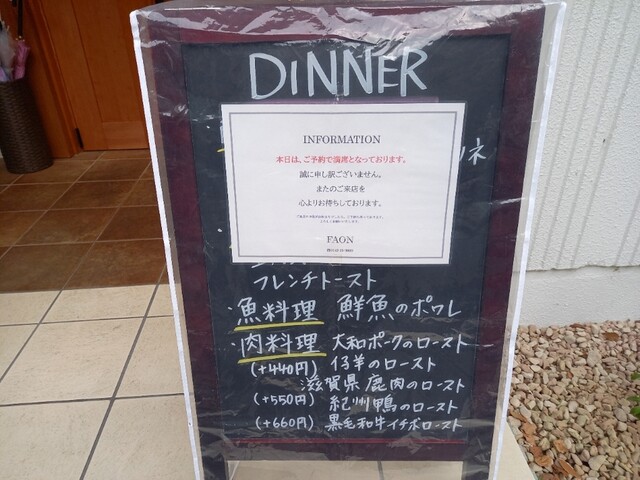 DINNER
ネ
INFORMATION
本日は、ご予約で満席となっております。
誠に申し訳ございません。
またのご来店を
心よりお待ちしております。
FAON
フレンチトースト
・魚料理 鮮魚のポワレ
・肉料理 大和ポークのロースト
(+440円) 仔羊のロースト
滋賀県 鹿肉のロースト
(+550円) 紀州鴨のロースト
(+660円) 黒毛和牛イチボロースト